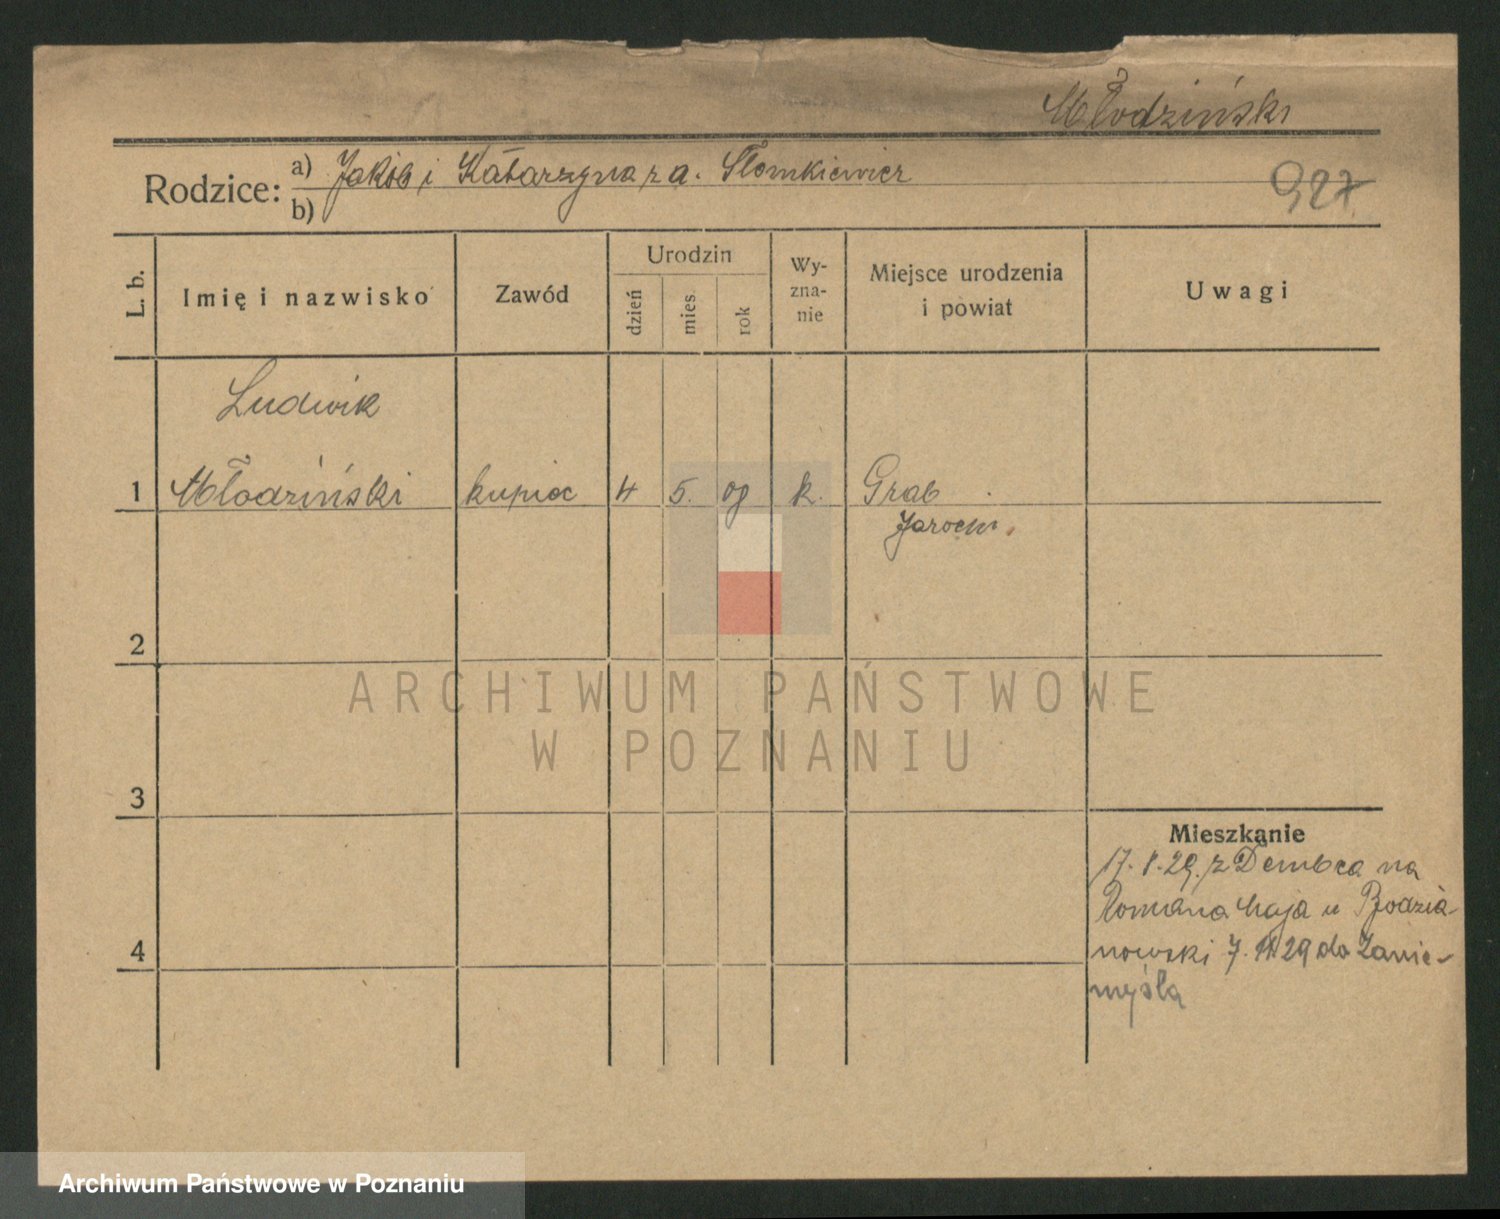 Młodziński
Rodzice: a) Jakób i Katarzyna z d. Słomkiewicz
b)
927
L. b.
Imię i nazwisko
Zawód
Urodzin
dzień
mies.
rok
Wy-
zna-
nie
Miejsce urodzenia
i powiat
Uwagi
Ludwik
1 Młodziński kupiec 4 5. 09 k. Grab
Jarocin.
2
3
4
Mieszkanie
17. 8. 29. z Dembca na
Romana Maja u Bodzia-
nowski 7. 11 29 do Zanie-
myśla
ARCHIWUM PAŃSTWOWE
W POZNANIU
Archiwum Państwowe w Poznaniu